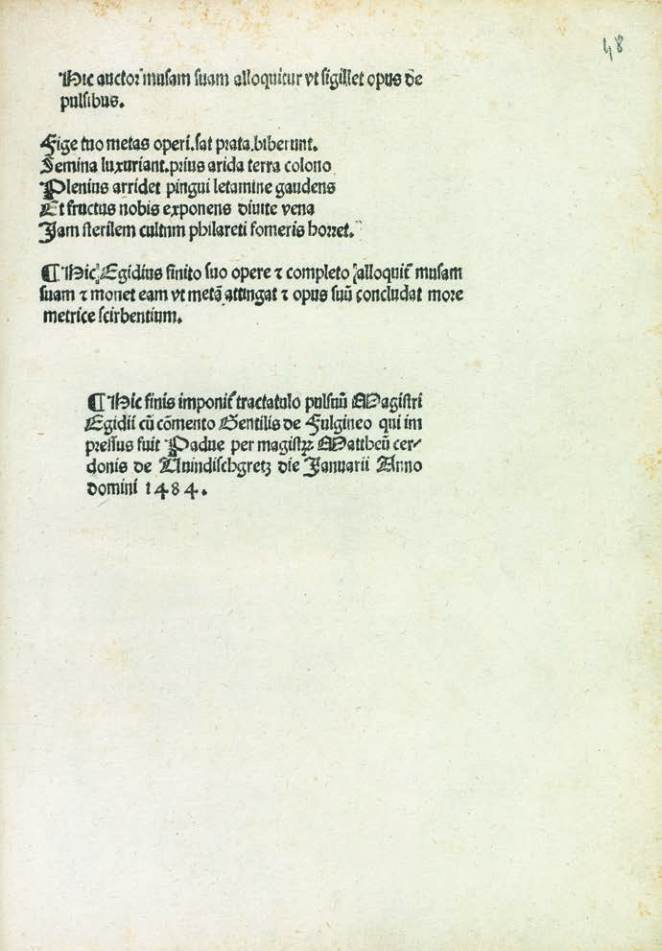 48
Hic auctor musam suam alloquitur vt sigillet opus de
pulsibus.
Fige tuo metas operi. sat prata. biberunt.
Semina luxuriant. prius arida terra colono
Plenius arridet pingui letamine gaudens
Et fructus nobis exponens diuite vena
Jam sterilem cultum philareti fomeris horret.
¶ Hic Egidius finito suo opere ⁊ completo alloquit̃ musam
suam ⁊ monet eam vt metã attingat ⁊ opus suũ concludat more
metrice scirbentium.
¶ Hic finis imponit̃ tractatulo pulsuũ Magistri
Egidii cũ cõmento Gentilis de Fulgineo qui im
pressus fuit Padue per magistrꝝ Mattheũ cer⸗
donis de Uuindischgretz die Januarii Anno
domini 1484.